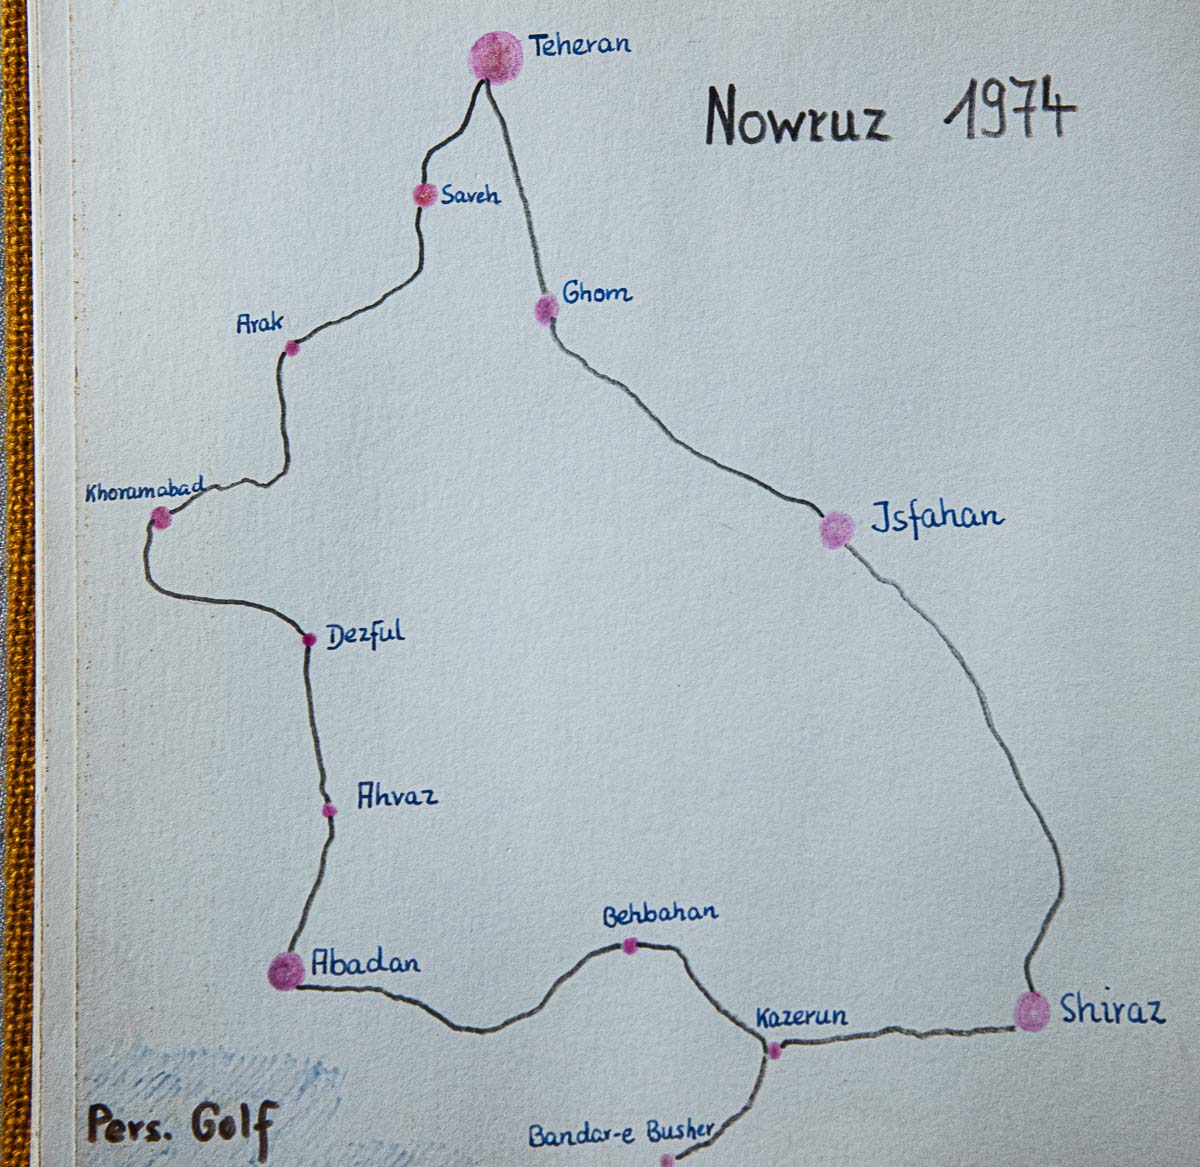 Teheran
Nowruz 1974
Saveh
Ghom
Arak
Khoramabad
Isfahan
Dezful
Ahvaz
Behbahan
Abadan
Kazerun
Shiraz
Pers. Golf
Bandar-e Busher